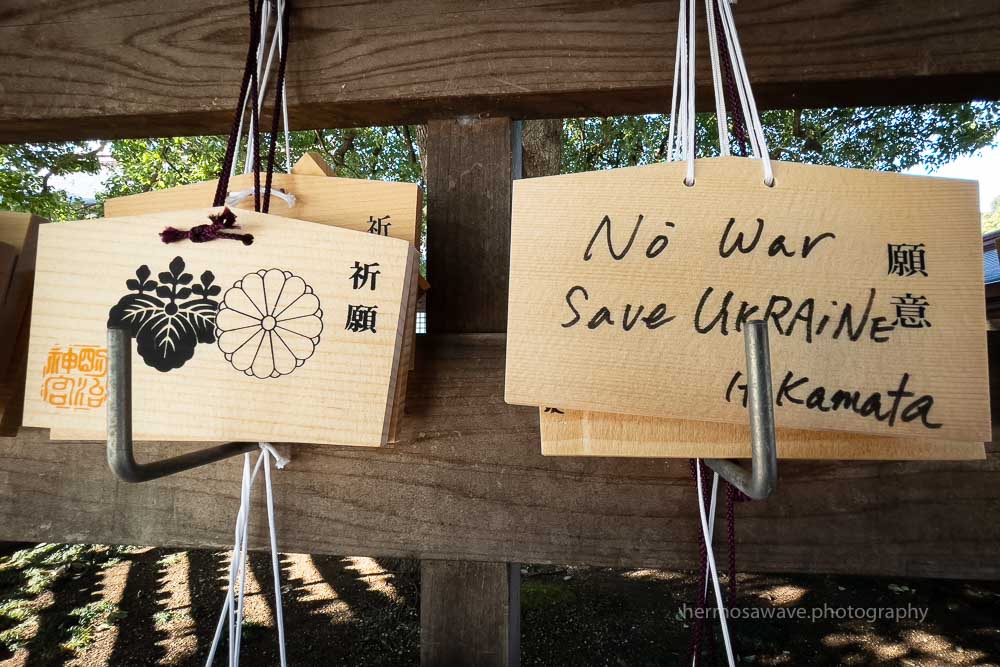 祈
祈願
明治
神宮
No War
Save UKRAiNE
H Kamata
願意
hermosawave.photography